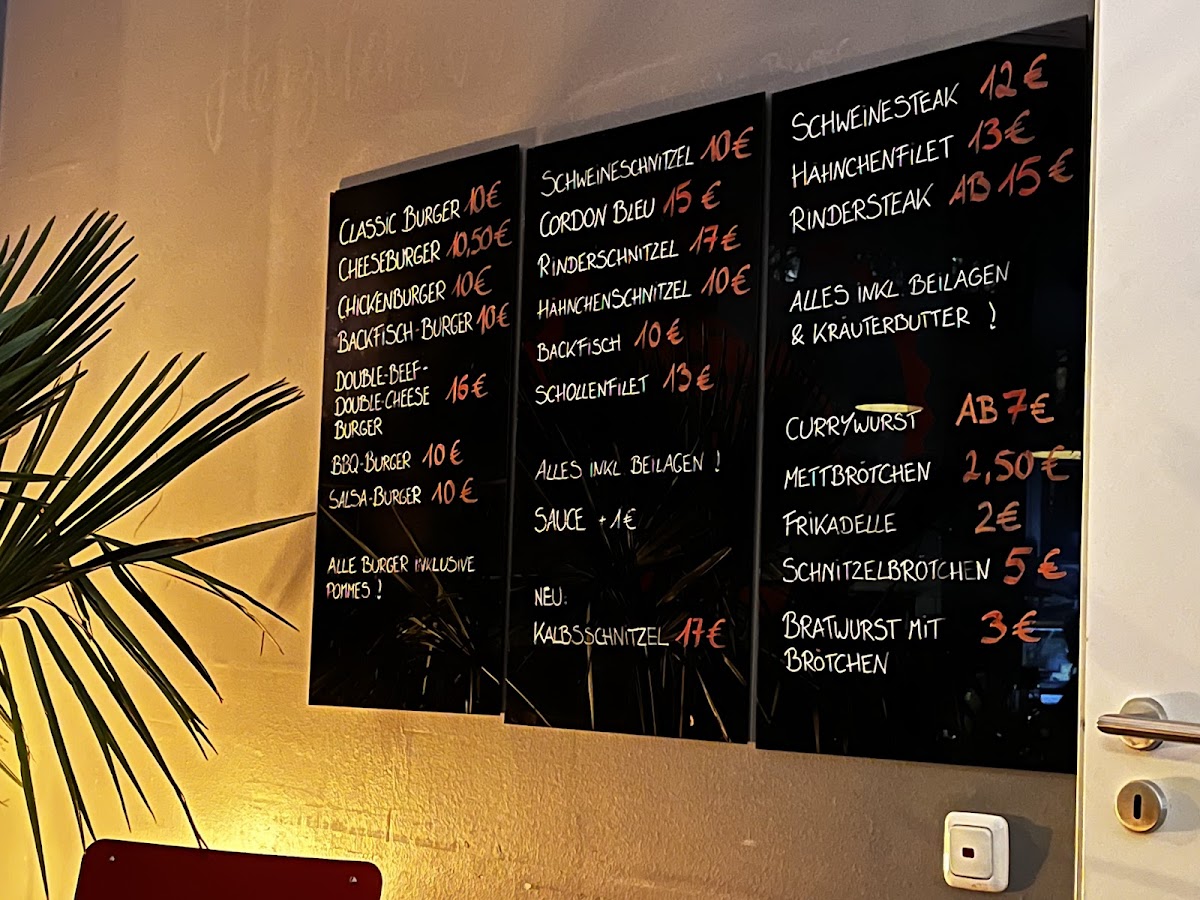 CLASSIC BURGER 10€
CHEESEBURGER 10,50€
CHICKENBURGER 10€
BACKFISCH-BURGER 10€
DOUBLE-BEEF-
DOUBLE-CHEESE 16€
BURGER
BBQ-BURGER 10€
SALSA-BURGER 10€
ALLE BURGER INKLUSIVE
POMMES !
SCHWEINESCHNITZEL 10€
CORDON BLEU 15€
RINDERSCHNITZEL 17€
HÄHNCHENSCHNITZEL 10€
BACKFISCH 10€
SCHOLLENFILET 13€
ALLES INKL BEILAGEN !
SAUCE +1€
NEU:
KALBSSCHNITZEL 17€
SCHWEINESTEAK 12€
HÄHNCHENFILET 13€
RINDERSTEAK AB 15€
ALLES INKL. BEILAGEN
& KRÄUTERBUTTER !
CURRYWURST AB 7€
METTBRÖTCHEN 2,50€
FRIKADELLE 2€
SCHNITZELBRÖTCHEN 5€
BRATWURST MIT 3€
BRÖTCHEN